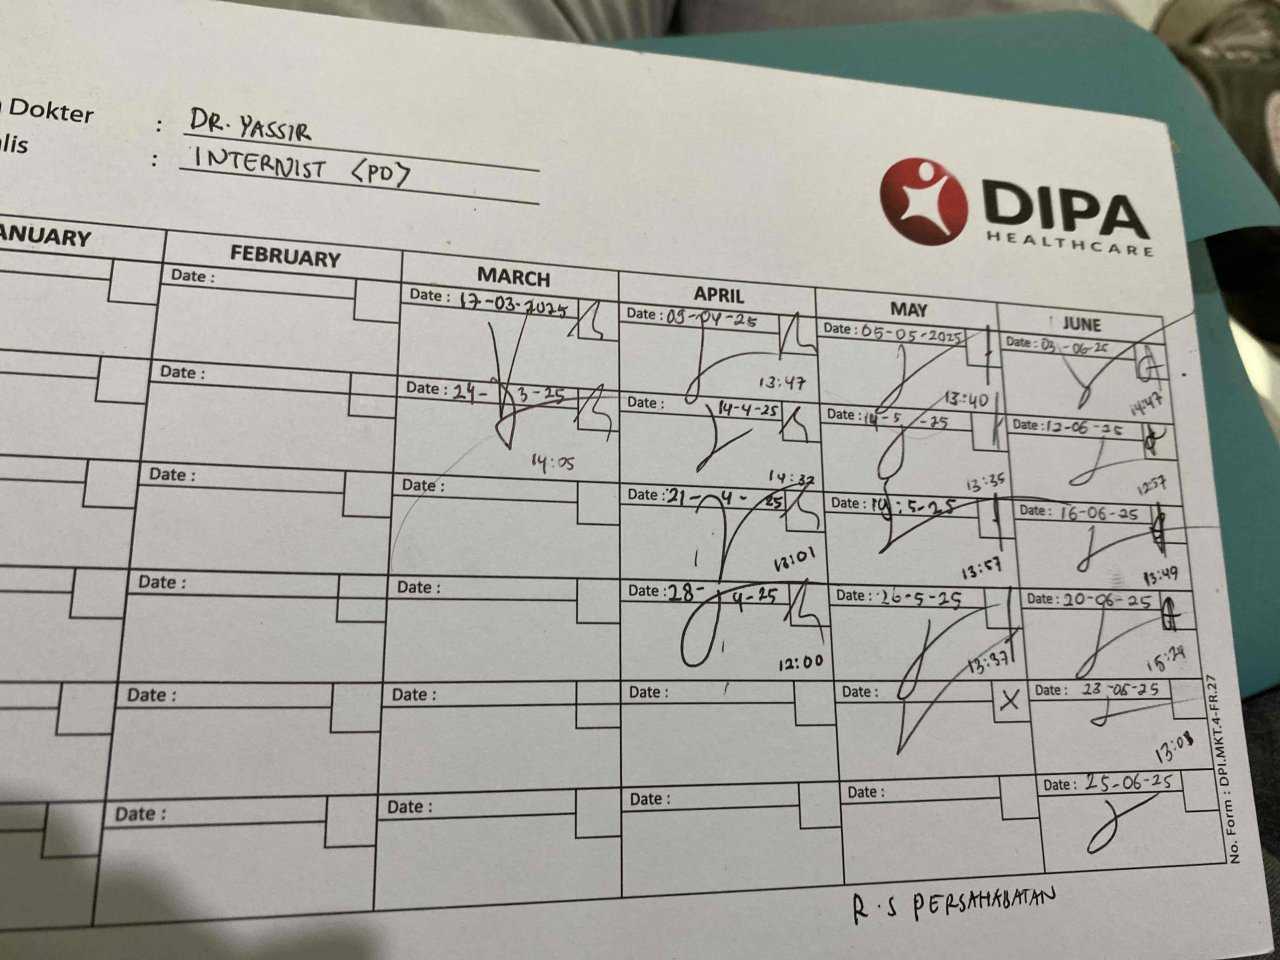 Dokter : DR. YASSIR
lis : INTERNIST (PD)
DIPA
HEALTHCARE
ANUARY FEBRUARY MARCH APRIL MAY JUNE
Date : Date : 17-03-2025 Date : 09-04-25 Date : 05-05-2025 Date : 03-06-25
13:47 13:40 14:47
Date : Date : 24-3-25 Date : 14-4-25 Date : 14-5-25 Date : 12-06-25
14:05 14:32 13:35 12:57
Date : Date : Date : 21-4-25 Date : 19-5-25 Date : 16-06-25
13:01 13:57 13:49
Date : Date : Date : 28-4-25 Date : 26-5-25 Date : 20-06-25
12:00 13:37 15:24
Date : Date : Date : Date : X Date : 23-06-25
13:08
Date : Date : Date : Date : Date : 25-06-25
R.S PERSAHABATAN
No. Form : DPI.MKT.4-FR.27